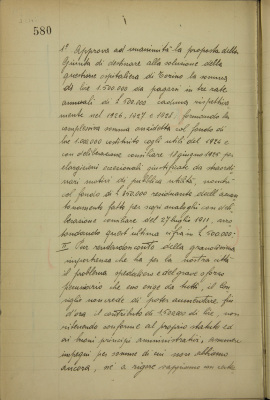 580
1° Approva ad unanimità la proposta della
Giunta di destinare alla soluzione della
questione ospitaliera di Torino la somma
di lire 1.500.000 da pagarsi in tre rate
annuali di L. 500.000 caduna rispettiva
mente nel 1926, 1927 e 1928, formando la
complessiva somma anzidetta col fondo di
lire 1.000.000 costituito cogli utili del 1924 e
con deliberazione consiliare giugno 1925 per
elargizioni eccezionali giustificate da
motivi di pubblica utilità, nonché
col fondo di L. avanzante dall'accan
tonamento fatto per analoghi con deli
berazione consiliare del 27 luglio 1911, arro
tondando quest'ultima cifra in L. 500.000.-
II° Pur rendendo conto della grandissima
importanza che ha per la nostra città
il problema ospedaliero e del grave sforzo
finanziario che esso esige da tutti, il Con
siglio non crede di poter aumentare fin
d'ora il contributo di 1.500.000 di lire, non
ritenendo conforme al proprio statuto ed
ai buoni principi amministrativi, assumere
impegni per somme di cui non abbiamo
ancora, né a rigore sappiamo